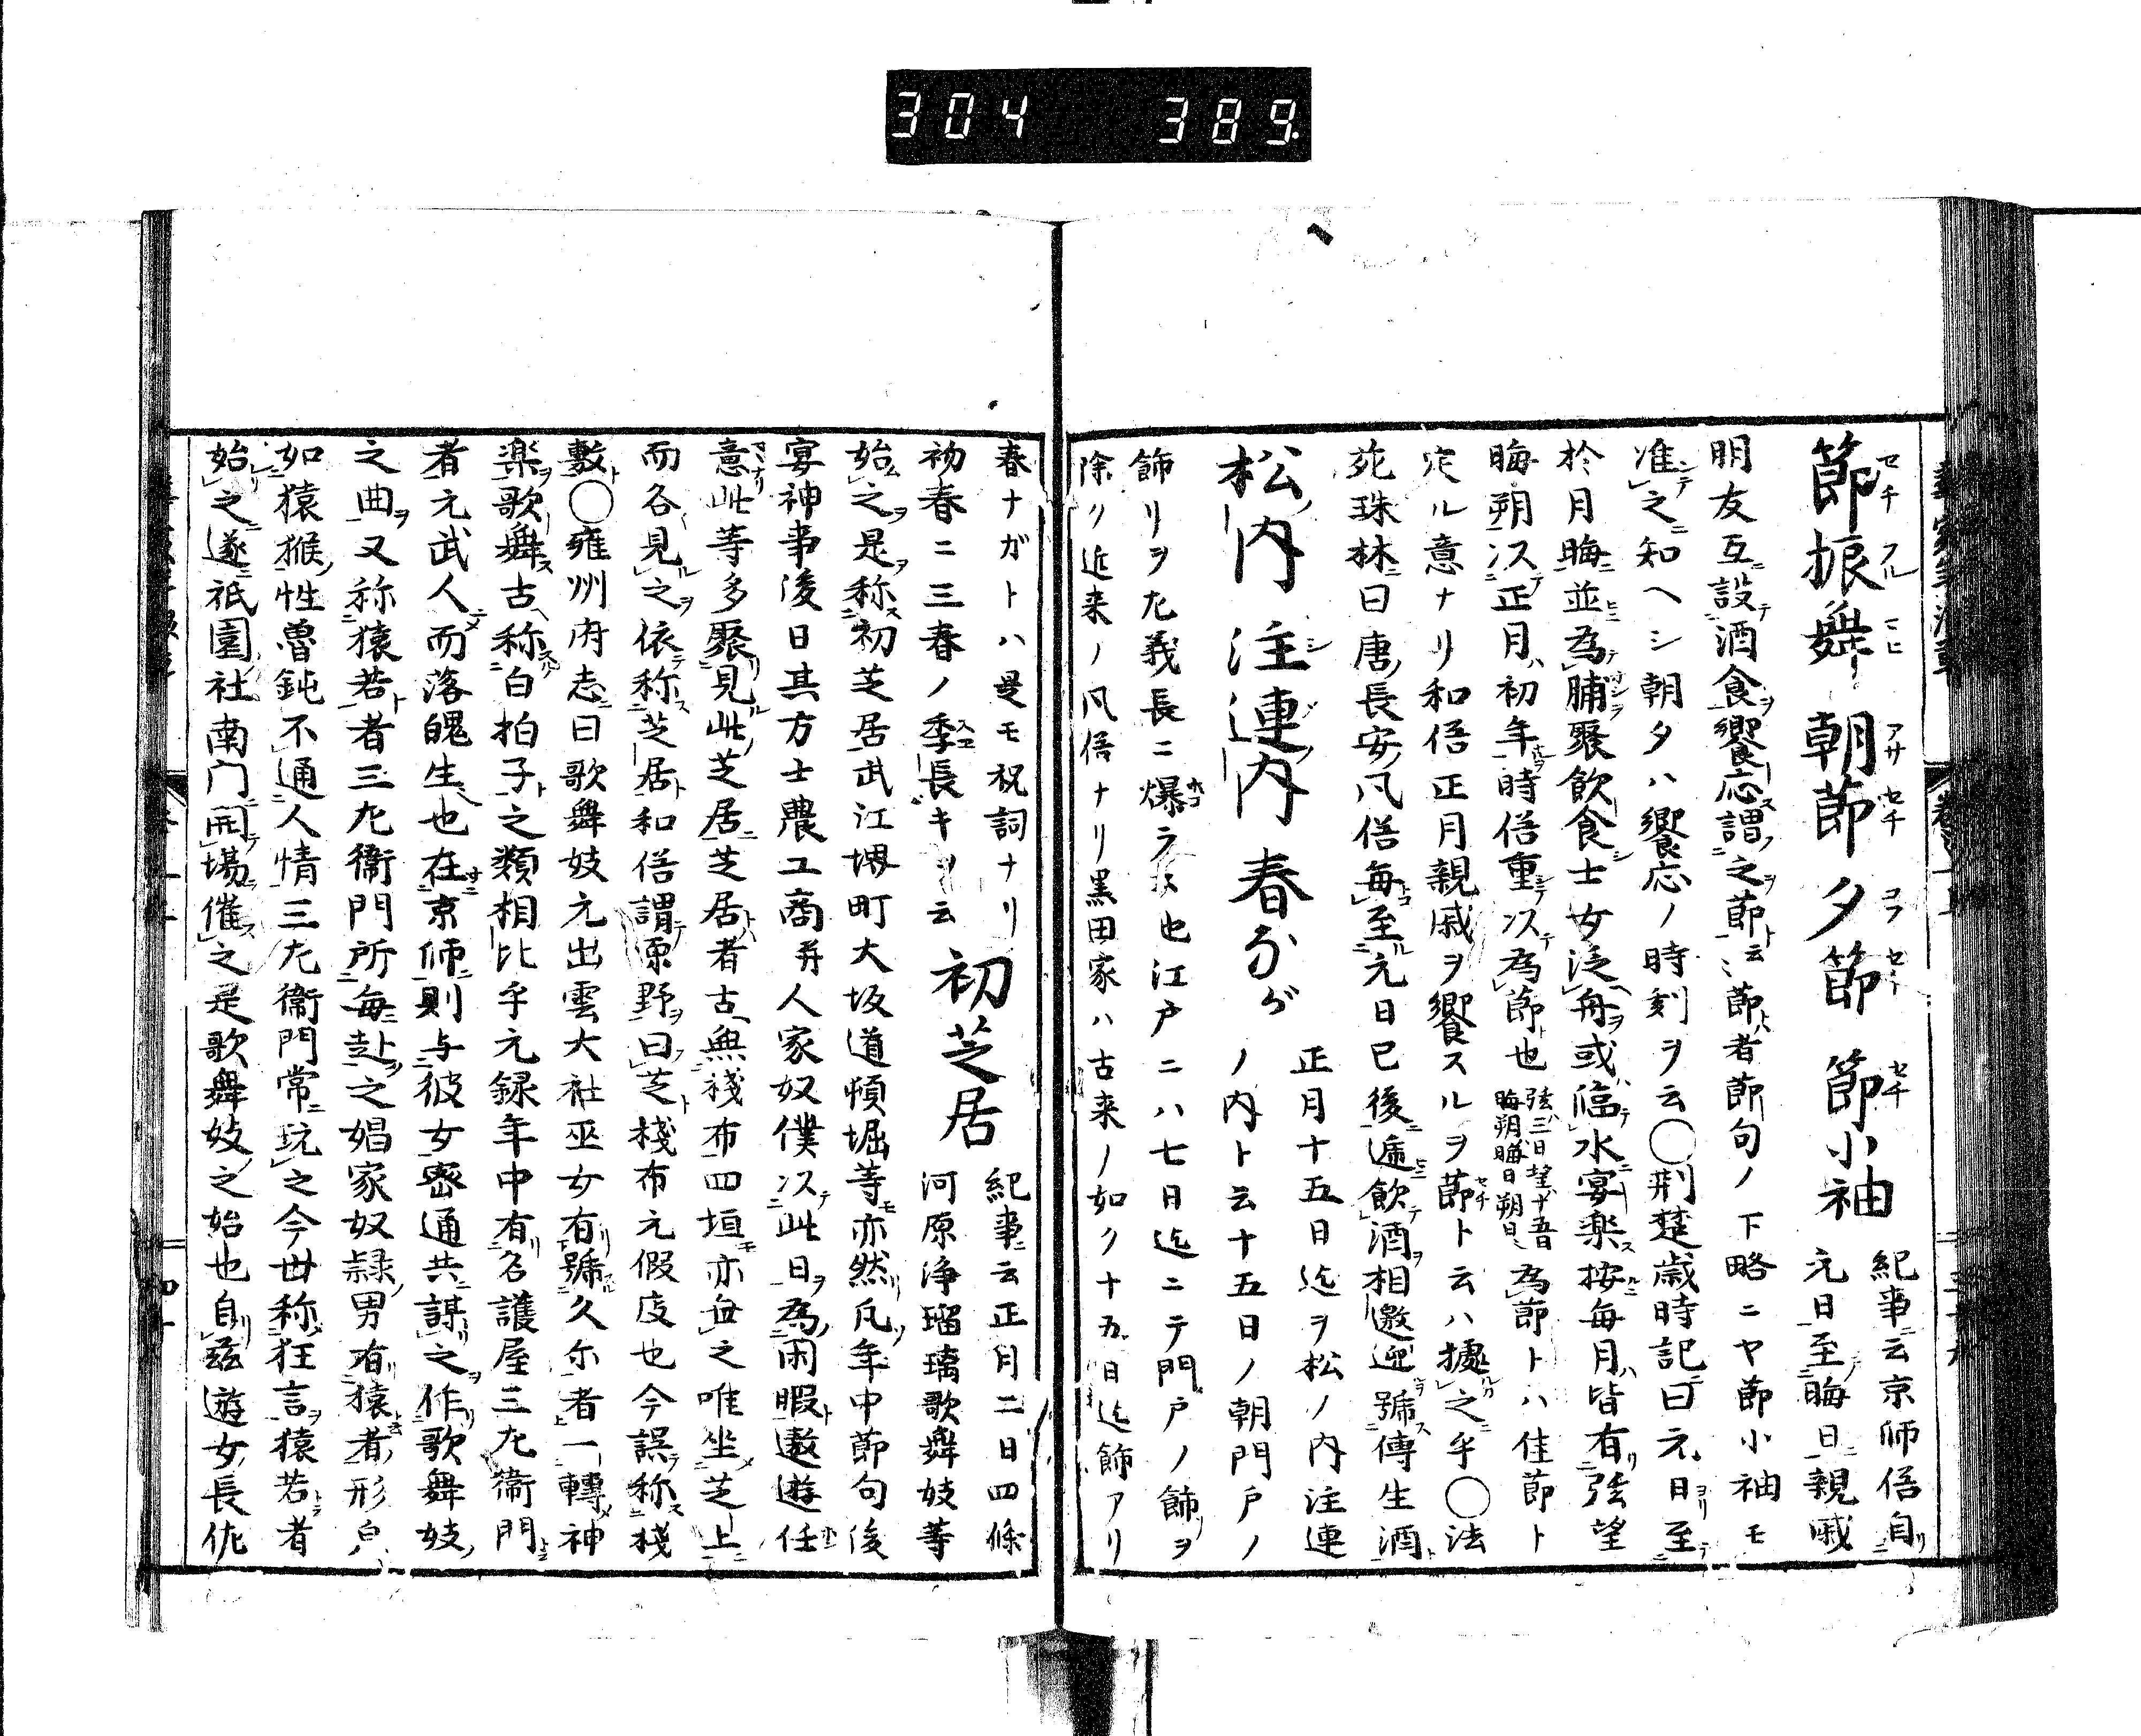 304 389
節振舞 朝節 夕節 節小袖 紀事云京師俗自
元日至晦日親戚
明友互設酒食饗応謂之節云節者節句ノ下略ニヤ節小袖モ
准之知ヘシ朝夕ハ饗応ノ時刻ヲ云○荆楚歳時記曰元日至
於月晦並為脯聚飲食士女泛舟或臨水宴楽按毎月皆有弦望
晦朔以正月初年時俗重以為節也 為節トハ佳節ト
定ル意ナリ和俗正月親戚ヲ饗スルヲ節ト云ハ據之乎○法
苑珠林曰唐長安凡俗毎至元日已後遞飲酒相邀迎號傳生酒
松内 注連内 春なが 正月十五日迄ヲ松ノ内注連
ノ内ト云十五日ノ朝門戸ノ
飾リヲ左義長ニ爆ラス也江戸ニハ七日迄ニテ門戸ノ飾ヲ
除ク近来ノ風俗ナリ黒田家ハ古来ノ如ク十五日迄飾アリ
春ナガトハ是モ祝詞ナリ
初春ニ三春ノ季長キヲ云 初芝居 紀事云正月二日四條
河原浄瑠璃歌舞妓等
始之是称初芝居武江堺町大坂道頓堀等亦然凡年中節句後
宴神事後日其方士農工商并人家奴僕以此日為閑暇遨遊任
意此等多聚見此芝居芝居者古無棧布四垣亦無之唯坐芝上
而各見之依称芝居和俗謂原野曰芝棧布元假庋也今誤称棧
敷○雍州府志曰歌舞妓元出雲大社巫女有號久尓者一轉神
楽歌舞古称白拍子之類相比乎元録年中有名護屋三左衛門
者元武人而落魄生也在京師則与彼女密通共謀之作歌舞妓
之曲又称猿若者三左衛門所毎赴之娼家奴隷男有猿者形皃
如猿猴性魯鈍不通人情三左衛門常玩之今世称狂言猿若者
始之遂祇園社南门開場催之是歌舞妓之始也自茲遊女長佐